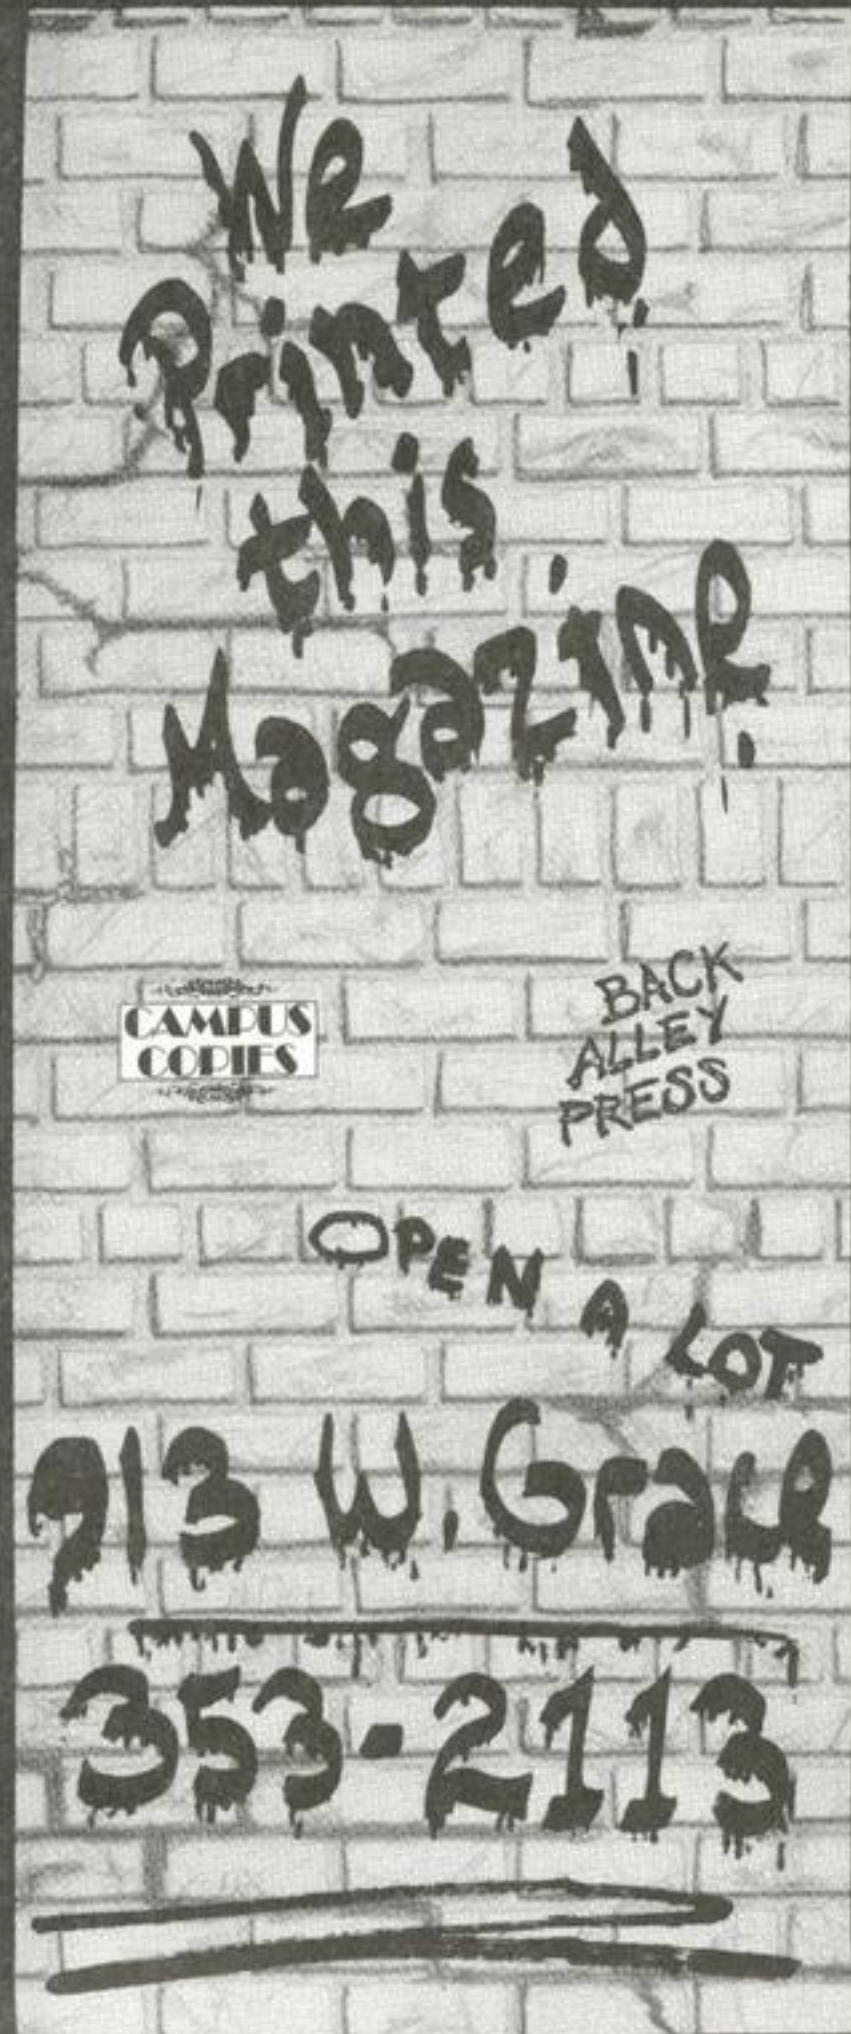 We
Printed
this
Magazine
CAMPUS
COPIES
BACK
ALLEY
PRESS
OPEN A LOT
913 W. Grace
353-2113